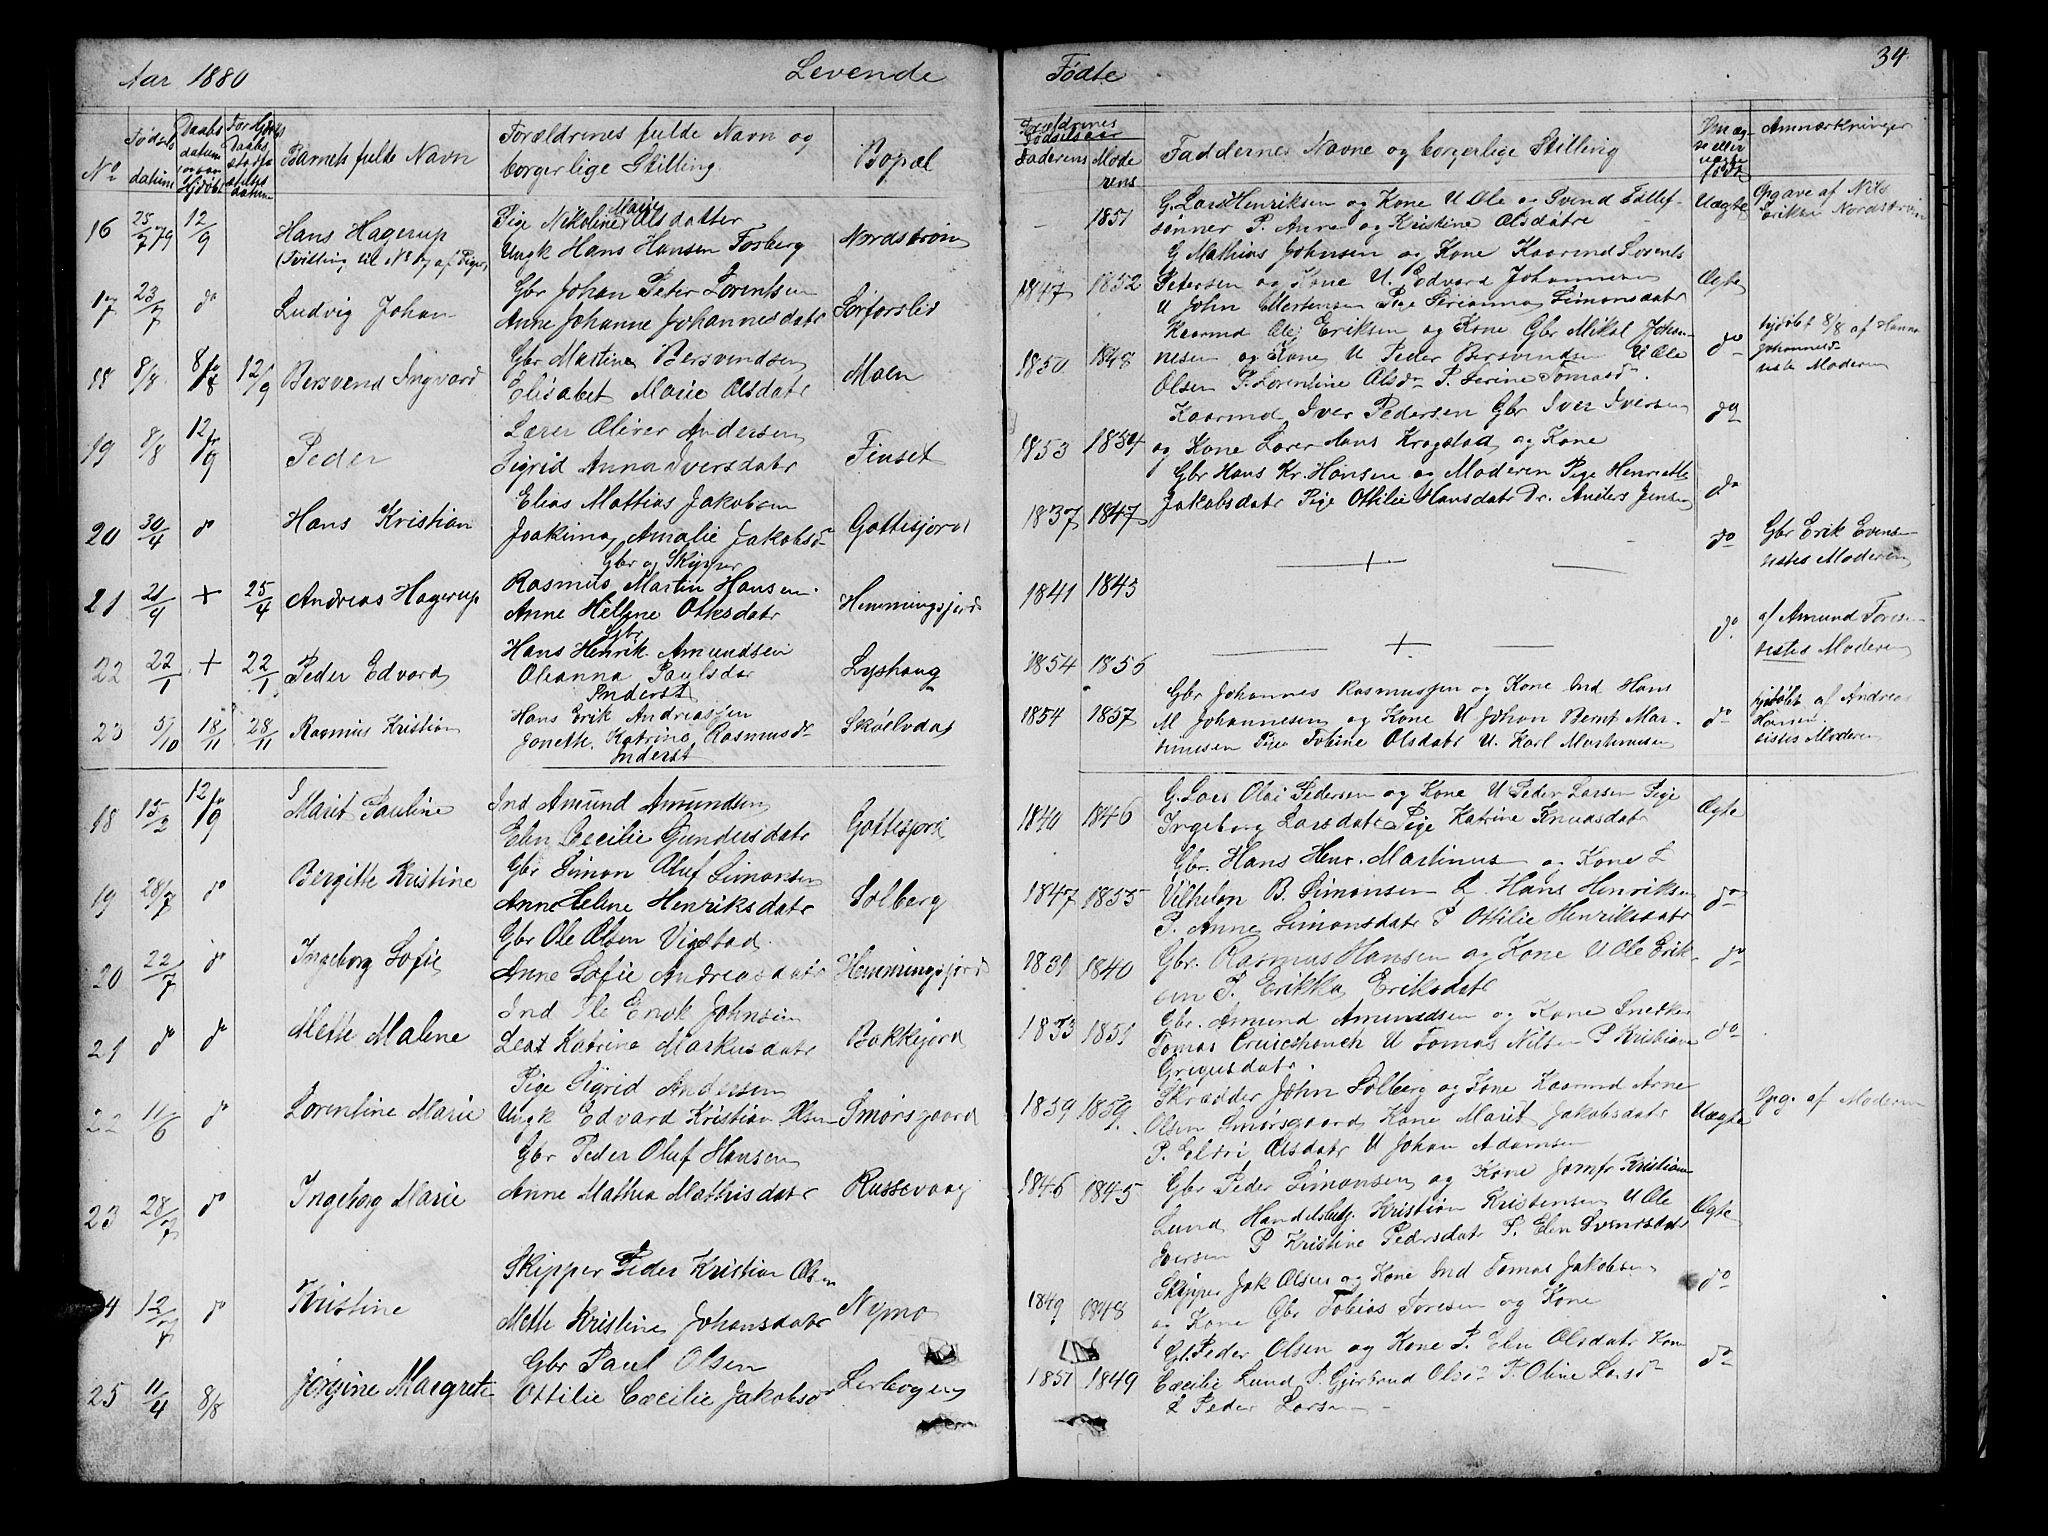 Aar 1880 Levende Fødte 34
No
Fødsels datum
Daabs datum
Barnets fulde Navn
Forældrenes fulde Navn og borgerlige Stilling
Bopæl
Forældrenes Fødselsaar
Faderens
Moderens
Faddernes Navne og borgerlige Stilling
Anmærkninger
16 25/7 79 12/9 Hans Hagerup
(Tvilling til No 17 af Piger)
Pige Nikoline Marie Olsdatter
Ungk Hans Hansen Forberg
Nordstrøm
- 1851
G. Lars Henriksen og Kone U Ole og Svend Tollef-
sønner P. Anne og Kristine Olsdatre
Uægte
Opgave af Nils
Eriksen Nordstrøm
17 23/7 do Ludvig Johan
Gbr Johan Peter Lorentsen
Anne Johanne Johannesdatr
Sørforslid
1847 1852
G Mathias Johnsen og Kone Kaarmd Lorents
Petersen og Kone U. Edvard Johannesen
U John Mortensen Pige Serianna Simonsdatr
Ægte
18 8/8 8/8 12/9 Bersvend Ingvard
Gbr Martin Bersvendsen
Elisabet Marie Olsdatr
Moen
1850 1848
Kaarmd Ole Eriksen og Kone Gbr Mikal Johan-
nesen og Kone U Peder Bersvendsen U Ole
Olsen P. Lorentine Olsdr P. Serine Tomasdr
do
hjdøbt 8/8 af Hanna
Johannesdr
vist Moderen
19 8/8 12/9 Peder
Lærer Oliver Andersen
Sigrid Anna Iversdatr
Finset
1853 1854
Kaarmd Iver Pedersen Gbr Iver Iversen
og Kone Lærer Hans Krogstad og Kone
do
20 30/4 do Hans Kristian
Elias Mathias Jakobsen
Joakima Amalie Jakobsdr
Gottesjord
1837 1847
Gbr Hans Kr. Hansen og Moderen Pige Henriette
Jakobsdatr Pige Ottilie Hansdatr Dr. Anders Jensen
do
21 21/4 + 25/4 Andreas Hagerup
Gbr og Skipper
Rasmus Martin Hansen
Anne Helene Otksdatr
Hemmingsjord
1841 1845
+
do
Gbr Erik Evens-
vistes Moderen
22 22/1 + 22/1 Peder Edvard
Gbr
Hans Henrik Amundsen
Oleanna Paulsdr
Lyshaug
1854 1856
+
do
af Amund Tores-
vistes Moderen
23 5/10 18/11 28/11 Rasmus Kristian
Inderst
Hans Erik Andreassen
Jonette Katrine Rasmusdr
Inderst
Skøelvdal
1854 1857
Gbr Johannes Rasmussen og Kone Ind Hans
M Johannesen og Kone U Johan Bernt Mar-
tinusen Pige Tobine Olsdatr U. Karl Martinusen
do
hjdøbt af Andreas
Hansen
vistes Moderen
18 15/2 12/9 Marit Pauline
Ind Amund Amundsen
Elen Cecilie Gundersdatr
Gottesjord
1840 1846
G. Lars Olai Pedersen og Kone U Peder Larsen Pige
Ingeborg Larsdatr Pige Katrine Knudsdatr
Ægte
19 28/7 do Bergitte Kristine
Gbr Simon Oluf Simonsen
Anne Helene Henriksdatr
Solberg
1847 1855
Gbr. Hans Henr. Martinus og Kone L
Vilhelm B. Simonsen L. Hans Henriksen
P. Anne Simonsdatr P Ottilie Henriksdatr
do
20 22/7 do Ingeborg Sofie
Gbr Ole Olsen Vigstad
Anne Sofie Andreasdatr
Hemmingsjord
1839 1840
Gbr. Rasmus Hansen og Kone U Ole Erik-
sen P. Erikka Eriksdatr
do
21 do do Mette Malene
Ind Ole Enok Johnsen
Leat Katrine Markusdatr
Bakkejord
1833 1851
Gbr. Amund Amundsen og Kone Snedker
Tomas Cruicshanch U Tomas Nilsen P Kristiane
Gregusdatr
do
22 11/6 do Lorentine Marie
Pige Sigrid Andersen
Ungk Edvard Kristian Olsen
Smørsgaard
1859 1859
Skrædder John Solberg og Kone Kaarmd Arne
Olsen Smørsgaard Kone Marit Jakobsdatr
P. Eldri Olsdatr U Johan Adamsen
Uægte
Opg. af Moderen
23 28/7 do Ingeborg Marie
Gbr Peder Oluf Hansen
Anne Mathea Mathisdatr
Russevaag
1846 1845
Gbr Peder Simonsen og Kone Jomfr Kristiane
Lund Handelsbetj. Kristian Kristensen U Ole
Iversen P Kristine Pedersdatr P. Elen Svendsdatr
Ægte
24 12/7 do Kristine
Skipper Peder Kristian Olsen
Mette Kristine Johansdatr
Nymo
1849 1848
Skipper Jak Olsen og Kone Ind Tomas Jakobsen
og Kone Gbr Tobias Toresen og Kone
do
25 11/4 8/8 Jørgine Margrete
Gbr Paul Olsen
Ottilie Cæcilie Jakobsdr
Lerbogen
1851 1849
G. Peder Olsen og Kone P. Elen Olsdatr Kone
Cæcilie Lund P. Gjertrud Olsdr P. Oline Larsdr
L Peder Larsen
do